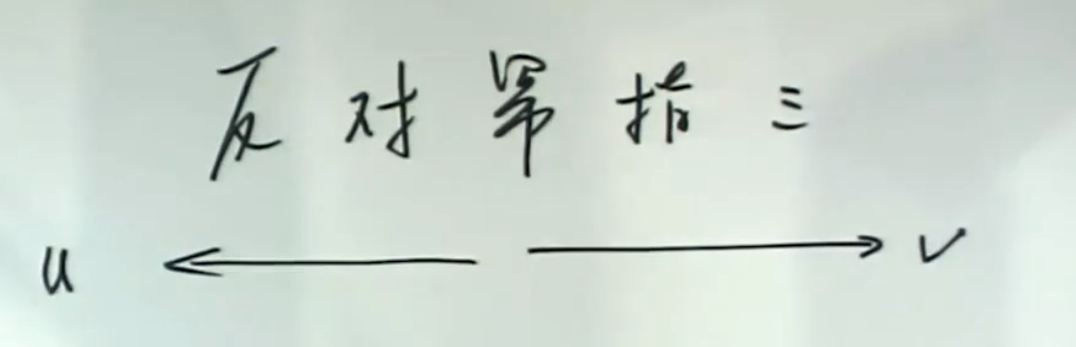 反对幂指三
u ← → v